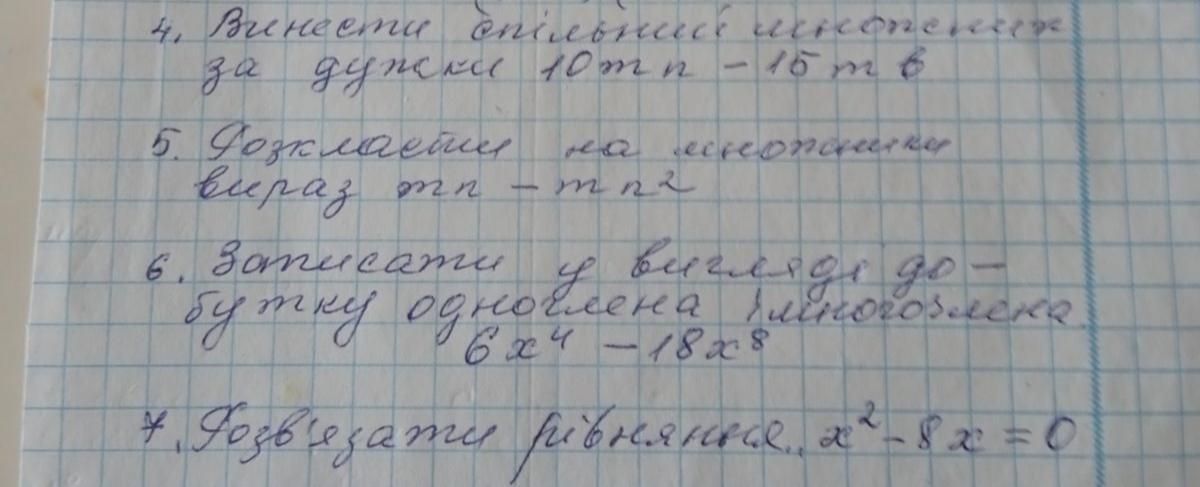 4. Винести спільний множник
за дужки 10mn - 15mb
5. Розкласти на множники
вираз mn - mn²
6. Записати у вигляді до-
бутку одночлена і многочлена
6x⁴ - 18x⁸
7. Розв'язати рівняння.. x² - 8x = 0